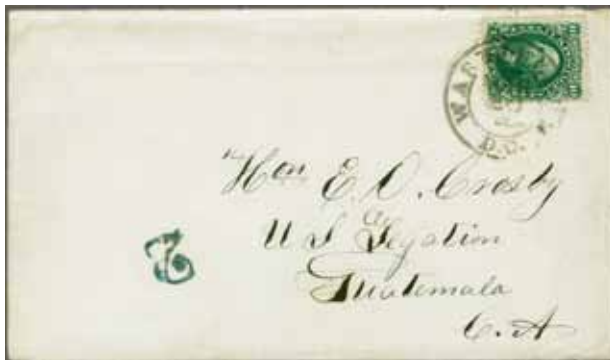 WAS
D.C.
Hon E. O. Crosby
U S Legation
Guatemala
C. A
2